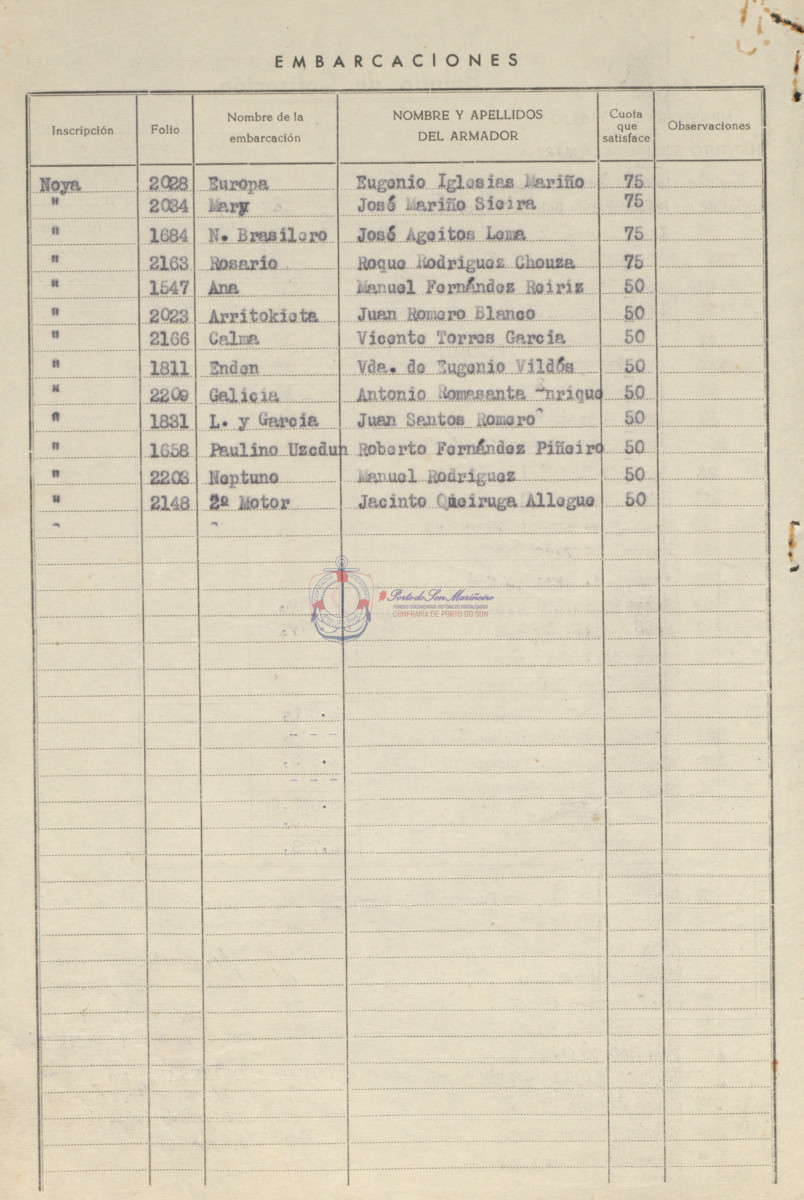 EMBARCACIONES
Inscripción Folio Nombre de la embarcación NOMBRE Y APELLIDOS DEL ARMADOR Cuota que satisface Observaciones
Noya 2028 Europa Eugenio Iglesias Mariño 75
" 2034 Mary José Mariño Sieira 75
" 1684 N. Brasilero José Ageitos Lema 75
" 2163 Rosario Roque Rodriguez Chouza 75
" 1547 Ana Manuel Fernández Reiriz 50
" 2023 Arritokieta Juan Romero Blanco 50
" 2166 Calma Vicente Torres Garcia 50
" 1811 Enden Vda. de Eugenio Vildós 50
" 2209 Galicia Antonio Romasanta Enrique 50
" 1831 L. y Garcia Juan Santos Romero 50
" 1658 Paulino Uzcdun Roberto Fernández Piñeiro 50
" 2203 Neptuno Manuel Rodriguez 50
" 2148 2º Motor Jacinto Queiruga Allegue 50
Porto do Son Mariñeiro
FONDOS DOCUMENTAIS HISTÓRICOS DIXITALIZADOS
CONFRARÍA DE PORTO DO SON